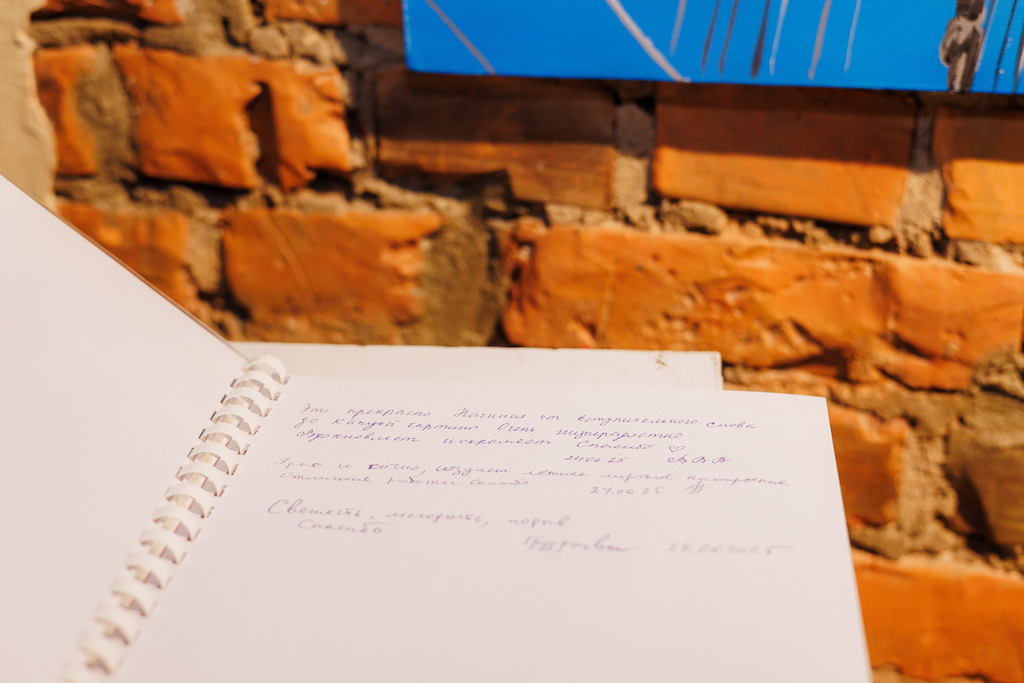 Это прекрасно. Начиная от вступительного слова
до каждой картины. Очень жизнерадостно.
Вдохновляет и окрыляет. Спасибо ♡
24.06.25
Ярко и сочно, создает летнее настроение
Отличные работы. Спасибо. 24.06.25
Свежесть, молодость, порыв.
Спасибо.
24.06.2025